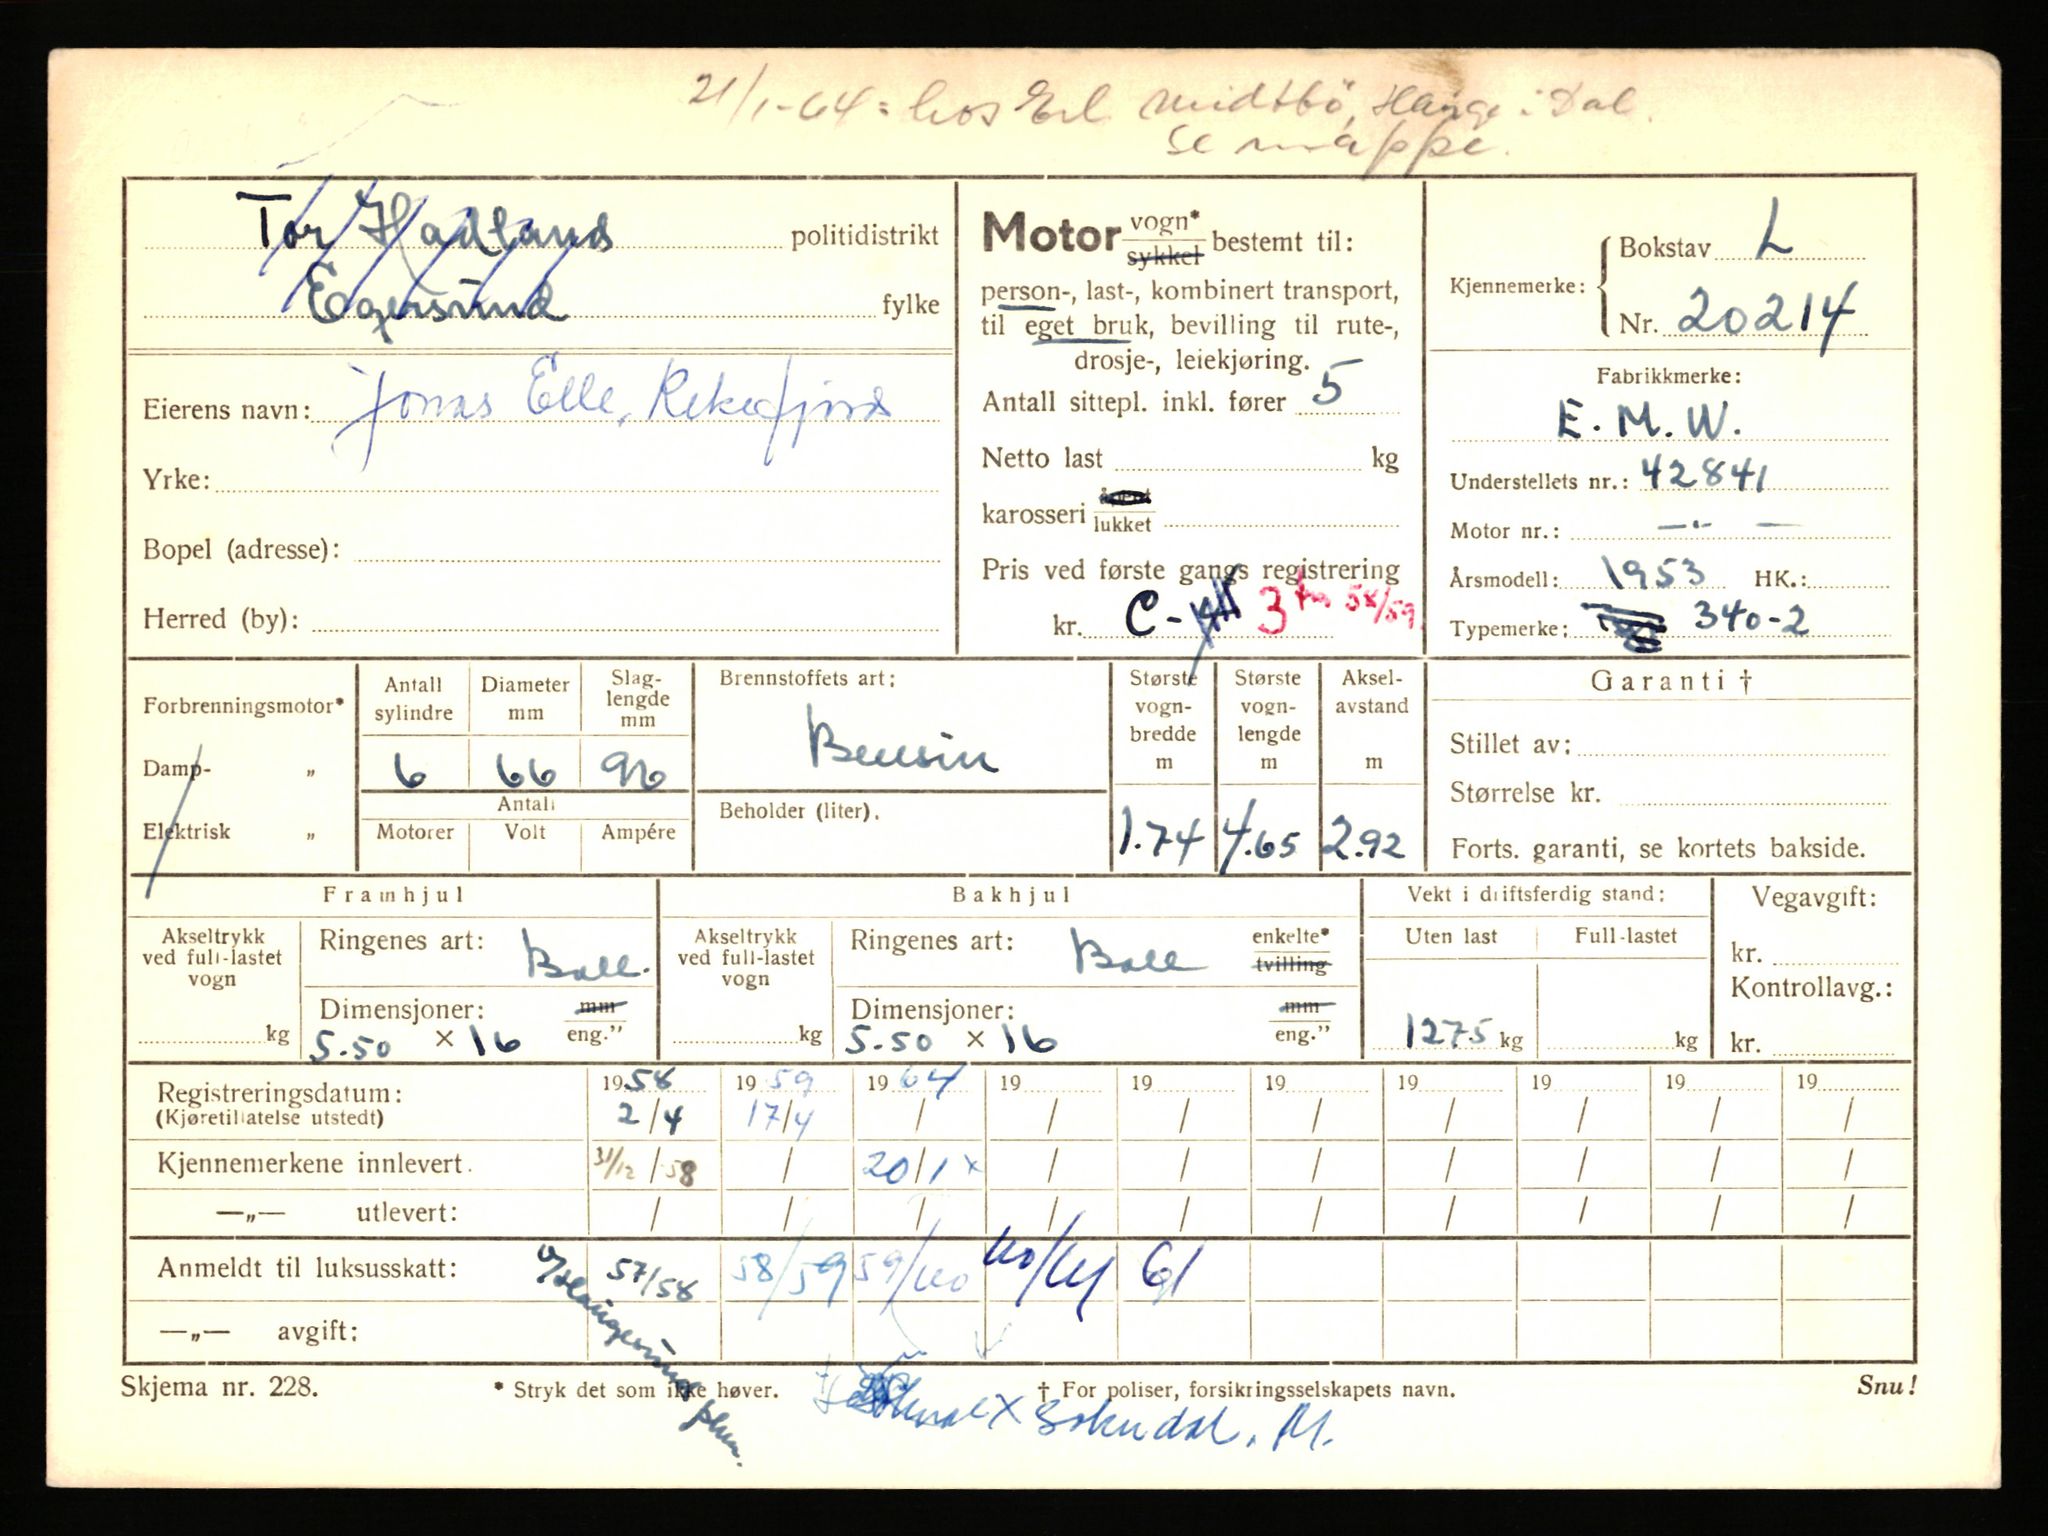 21/1-64: hos Erl Midtbö, Hauge i Dal.
se mappe.
Tor Hadland politidistrikt
Egersund fylke
Eierens navn: Jonas Elle, Rekefjord
Yrke:
Bopel (adresse):
Herred (by):
Motor vogn* sykkel bestemt til:
person-, last-, kombinert transport,
til eget bruk, bevilling til rute-,
drosje-, leiekjøring.
Antall sittepl. inkl. fører 5
Netto last kg
karosseri åpent lukket
Pris ved første gangs registrering
kr. C- 3 58/59
Kjennemerke: Bokstav L
Nr. 20214
Fabrikkmerke:
E.M.W.
Understellets nr.: 42841
Motor nr.: — " —
Årsmodell: 1953 HK.:
Typemerke: 340-2
Forbrenningsmotor*
Damp- „
Elektrisk „
Antall sylindre
Diameter mm
Slag-lengde mm
6 66 96
Antall
Motorer Volt Ampére
Brennstoffets art:
Bensin
Beholder (liter).
Største vogn-bredde m
Største vogn-lengde m
Aksel-avstand m
1.74 4.65 2.92
Garanti †
Stillet av:
Størrelse kr.
Forts. garanti, se kortets bakside.
Framhjul
Akseltrykk ved full-lastet vogn
kg
Ringenes art: Ball.
Dimensjoner: mm eng."
5.50 × 16
Bakhjul
Akseltrykk ved full-lastet vogn
kg
Ringenes art: Ball enkelte* tvilling
Dimensjoner: mm eng."
5.50 × 16
Vekt i driftsferdig stand:
Uten last Full-lastet
1275 kg kg
Vegavgift:
kr.
Kontrollavg.:
kr.
Registreringsdatum: 1958 1959 1964 19 19 19 19 19 19 19
(Kjøretillatelse utstedt) 2/4 17/4 / / / / / / / /
Kjennemerkene innlevert. 31/12/58 / 20/1 x / / / / / / /
—„— utlevert: / / / / / / / / / /
Anmeldt til luksusskatt: 57/58 58/59 59/60 60/61 61
—„— avgift:
Skjema nr. 228.
* Stryk det som ikke høver.
† For poliser, forsikringsselskapets navn.
Snu!
x Sokndal. M.